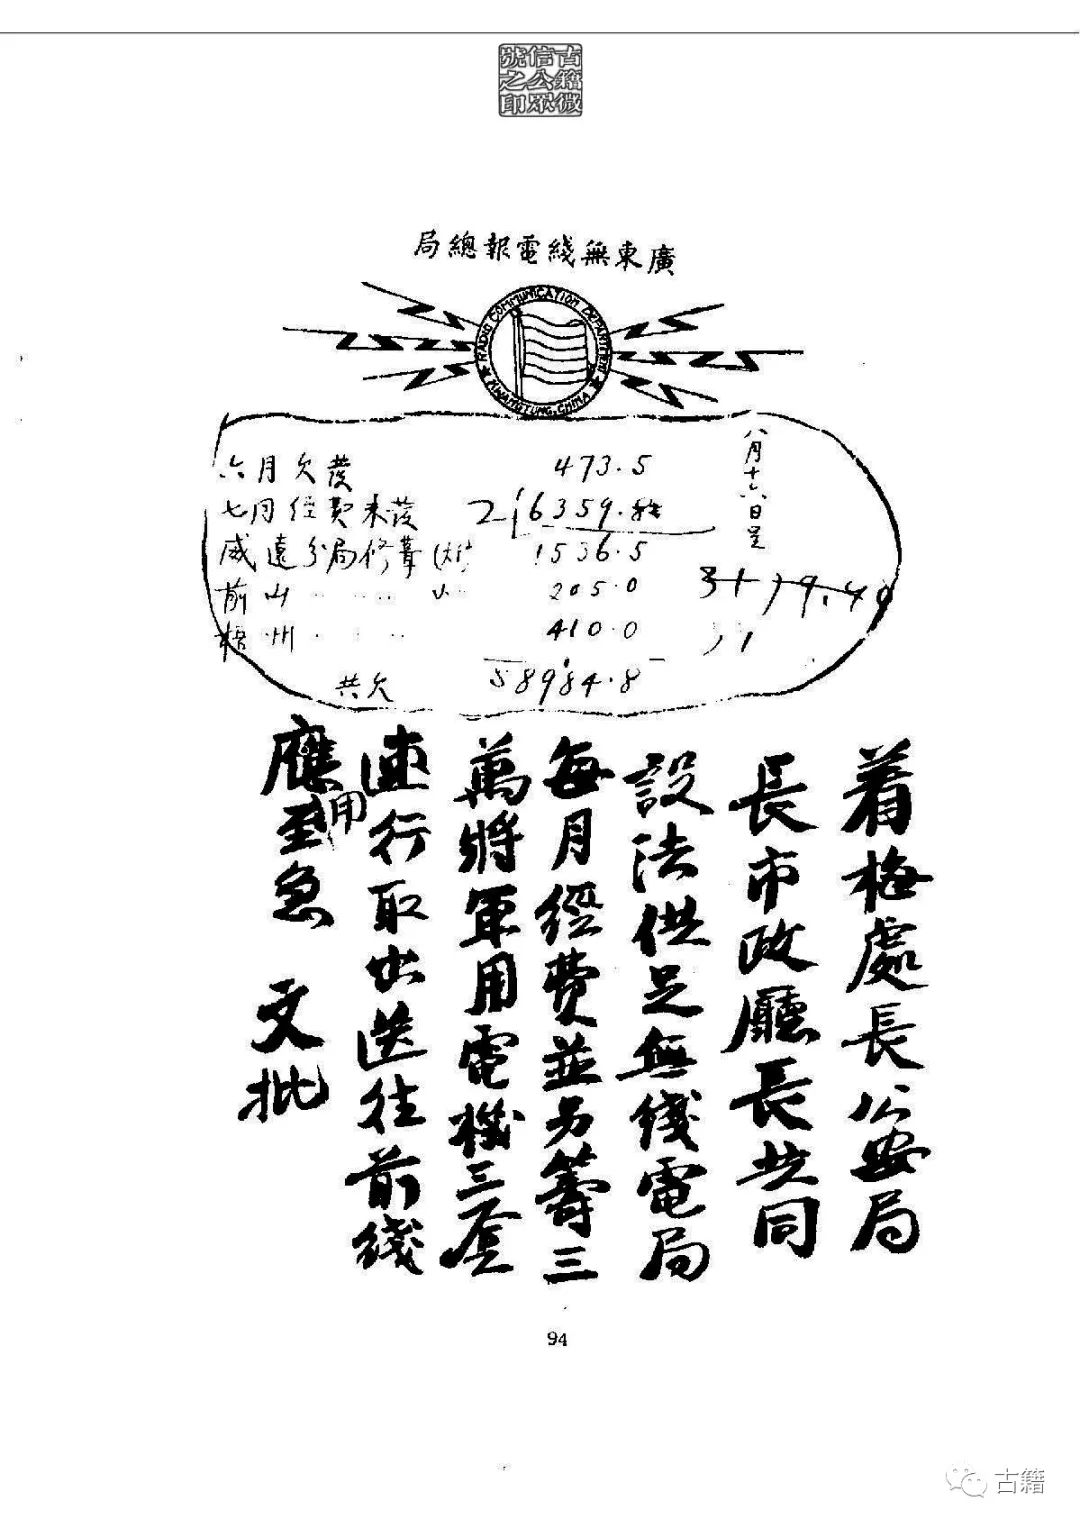 古籍微信公眾號之印
廣東無綫電報總局
RADIO COMMUNICATION DEPARTMENT
KWANGTUNG, CHINA
八月十六日呈
六月欠發 473.5
七月經費未發 6359.
威遠分局修葺 1536.5
前山 ‥‥ 205.0
梧州 ‥‥ 410.0
共欠 8984.8
着梅處長公安局
長市政廳長共同
設法供足無綫電局
每月經費並另籌三
萬將軍用電機三套
速行取出送往前綫
應用至急 文批
94
古籍